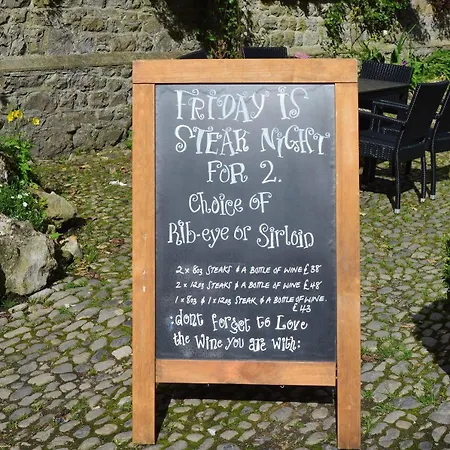 Friday is
Steak Night
for 2.
Choice of
Rib-eye or Sirloin
2 x 8oz STEAKS & A BOTTLE OF WINE £38
2 x 12oz STEAKS & A BOTTLE OF WINE £48
1 x 8oz & 1 x 12oz STEAK & A BOTTLE OF WINE.
£43
:dont forget to Love
the Wine you are with: